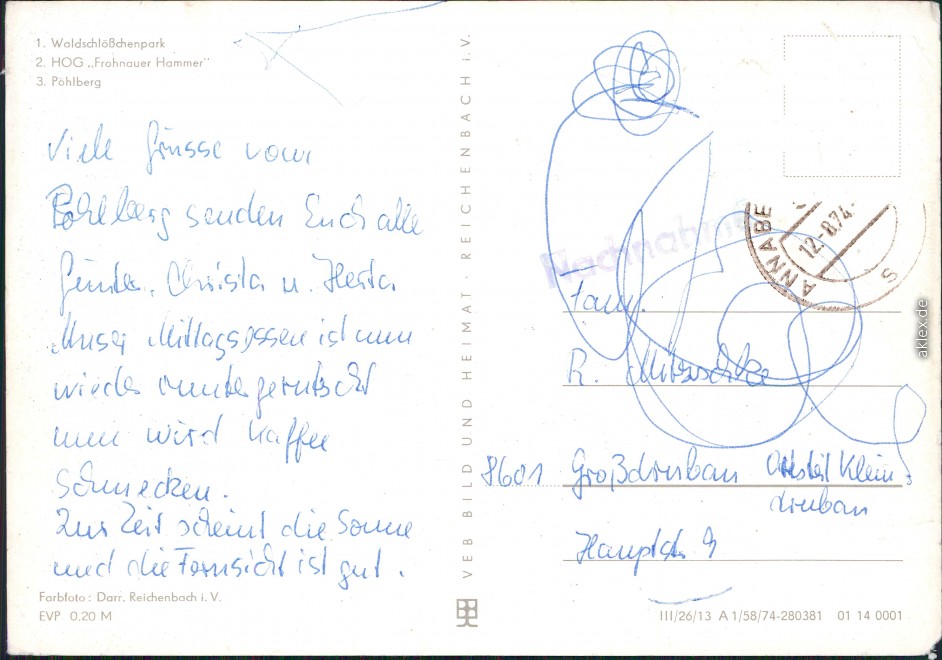 1. Waldschlößchenpark
2. HOG „Frohnauer Hammer"
3. Pöhlberg
Viele Grüsse vom
Pöhlberg senden Euch alle
Günter, Christa u. Herta
Unser Mittagessen ist nun
wieder runtergerutscht
nun wird Kaffee
Schmecken.
Zur Zeit scheint die Sonne
und die Fernsicht ist gut.
Farbfoto: Darr, Reichenbach i. V.
EVP 0.20 M
VEB BILD UND HEIMAT · REICHENBACH i. V.
Nachnahme
ANNABE
12.-8.74-
S
Fam.
R. Mitzschke
8601 Großdrubau Ortsteil Klein
drubau
Hauptstr. 9
III/26/13 A 1/58/74-280381 01 14 0001
aklex.de